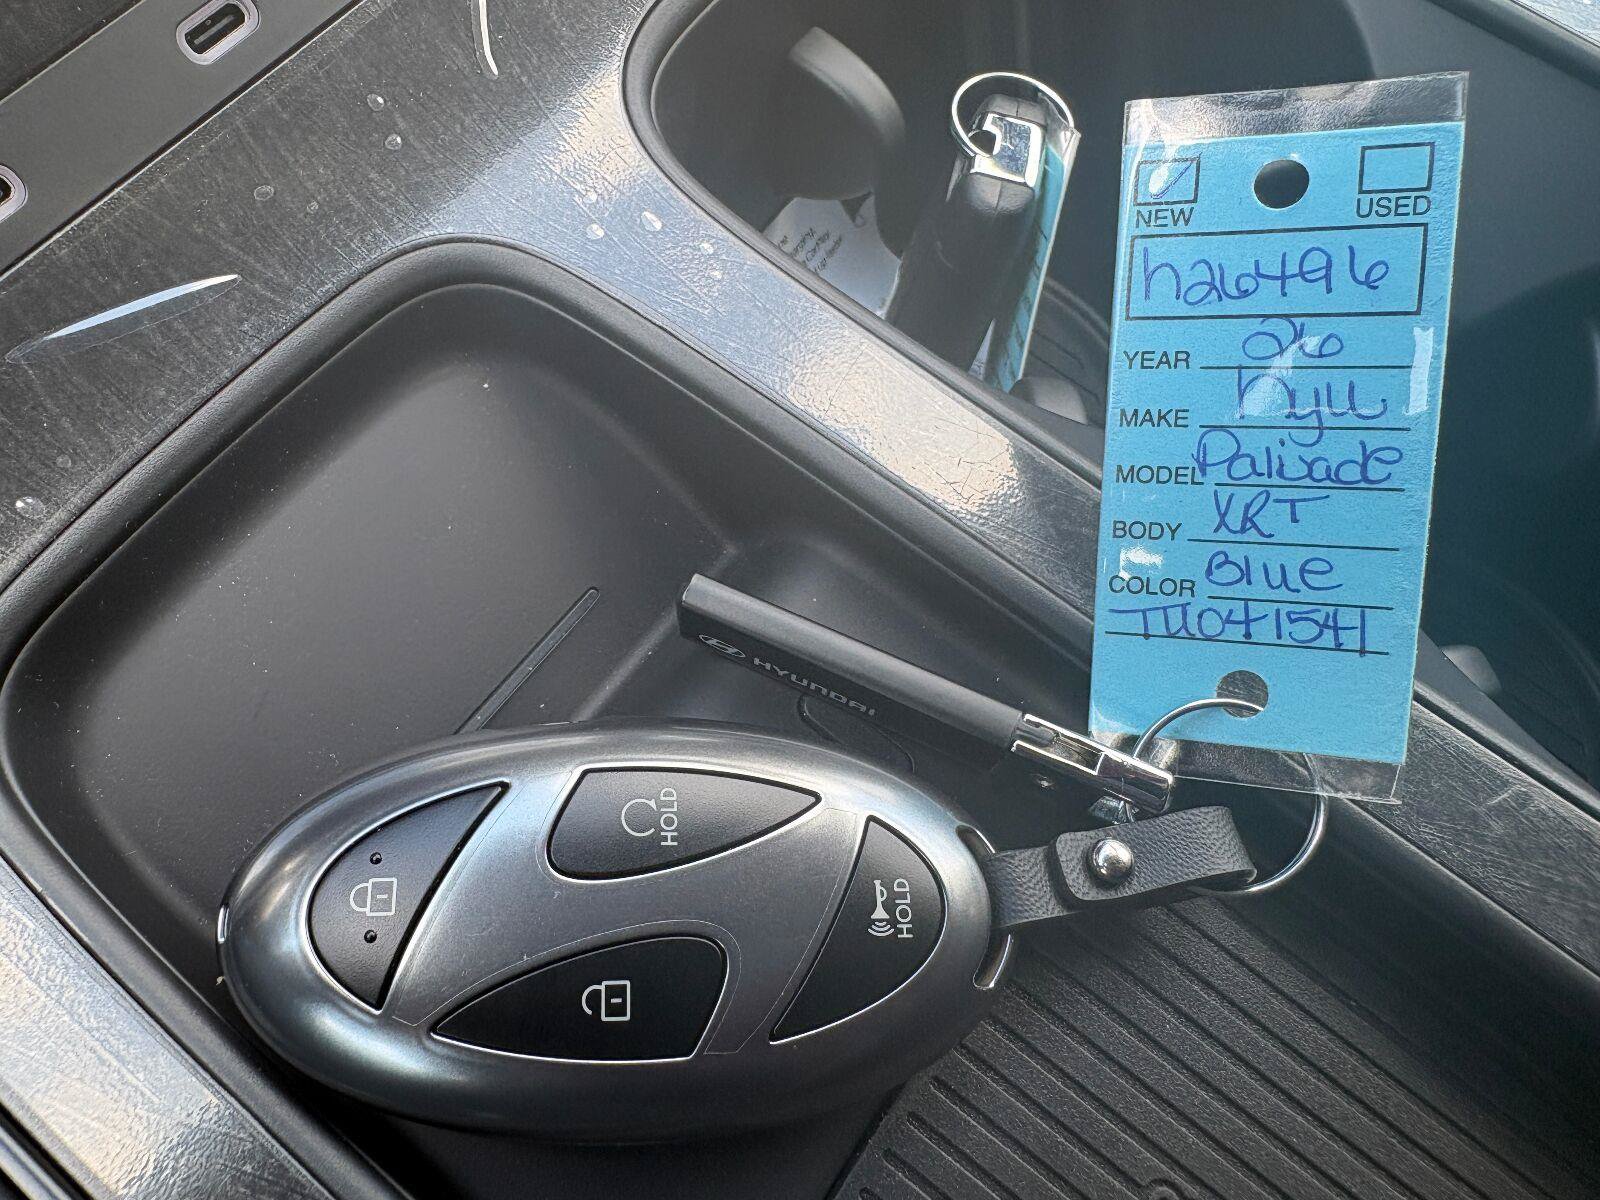 NEW USED
h26496
YEAR 26
MAKE hyu
MODEL Palisade
BODY XRT
COLOR Blue
TU041541
HYUNDAI
HOLD
HOLD